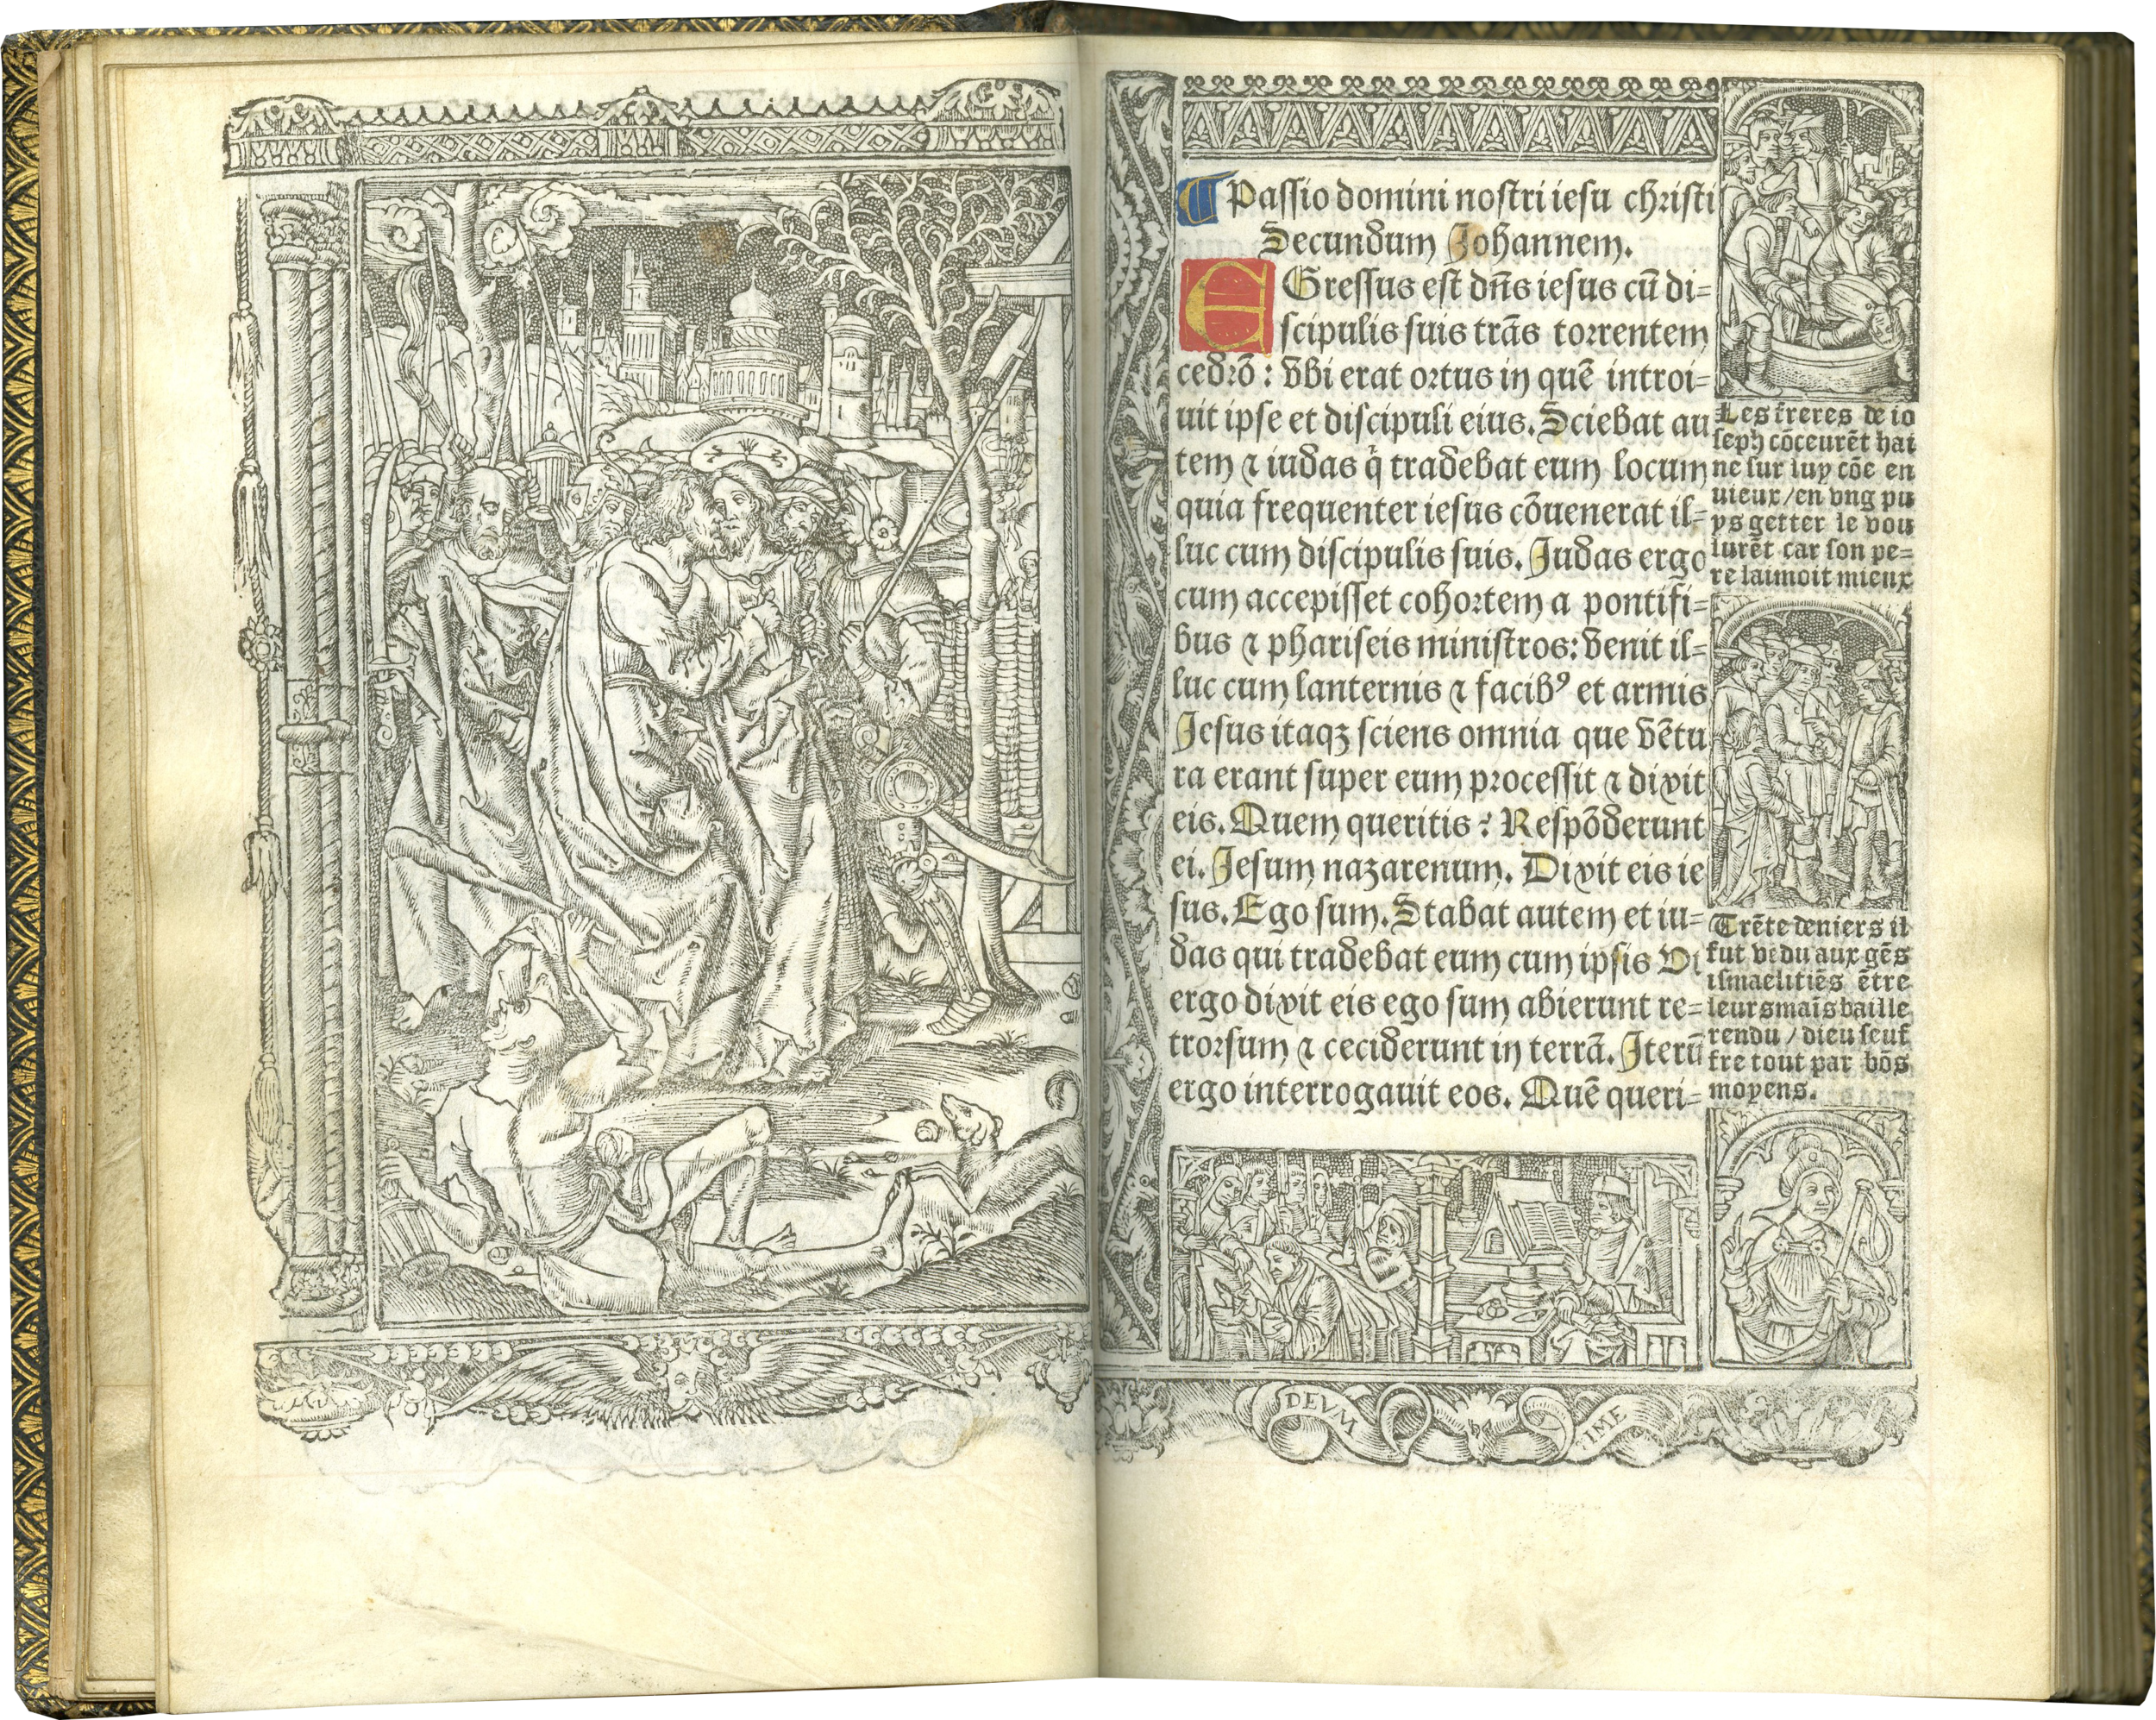 Passio domini nostri iesu christi
Secundum Johannem.
EGressus est dñs iesus cū di=
scipulis suis trãs torrentem
cedrō: vbi erat ortus in quē introi=
uit ipse et discipuli eius. Sciebat au
tem ⁊ iudas q̇ tradebat eum locum
quia frequenter iesus cōuenerat il=
luc cum discipulis suis. Judas ergo
cum accepisset cohortem a pontifi=
bus ⁊ phariseis ministros: venit il=
luc cum lanternis ⁊ facibꝰ et armis
Jesus itaqꝫ sciens omnia que vētu
ra erant super eum processit ⁊ dixit
eis. Quem queritis? Respōderunt
ei. Jesum nazarenum. Dixit eis ie
sus. Ego sum. Stabat autem et iu=
das qui tradebat eum cum ipsis Vt
ergo dixit eis ego sum abierunt re=
trorsum ⁊ ceciderunt in terrã. Iterū
ergo interrogauit eos. Quē queri=
Les freres de io
seph cōceurēt hai
ne sur luy cōe en
uieux/en vng pu
ys getter le vou
lurēt car son pe=
re laimoit mieux
Trēte deniers il
fut vēdu aux gēs
ismaelitiēs ētre
leurs maīs baille
rendu / dieu seuf
fre tout par bōs
moyens.
DEVM TIME